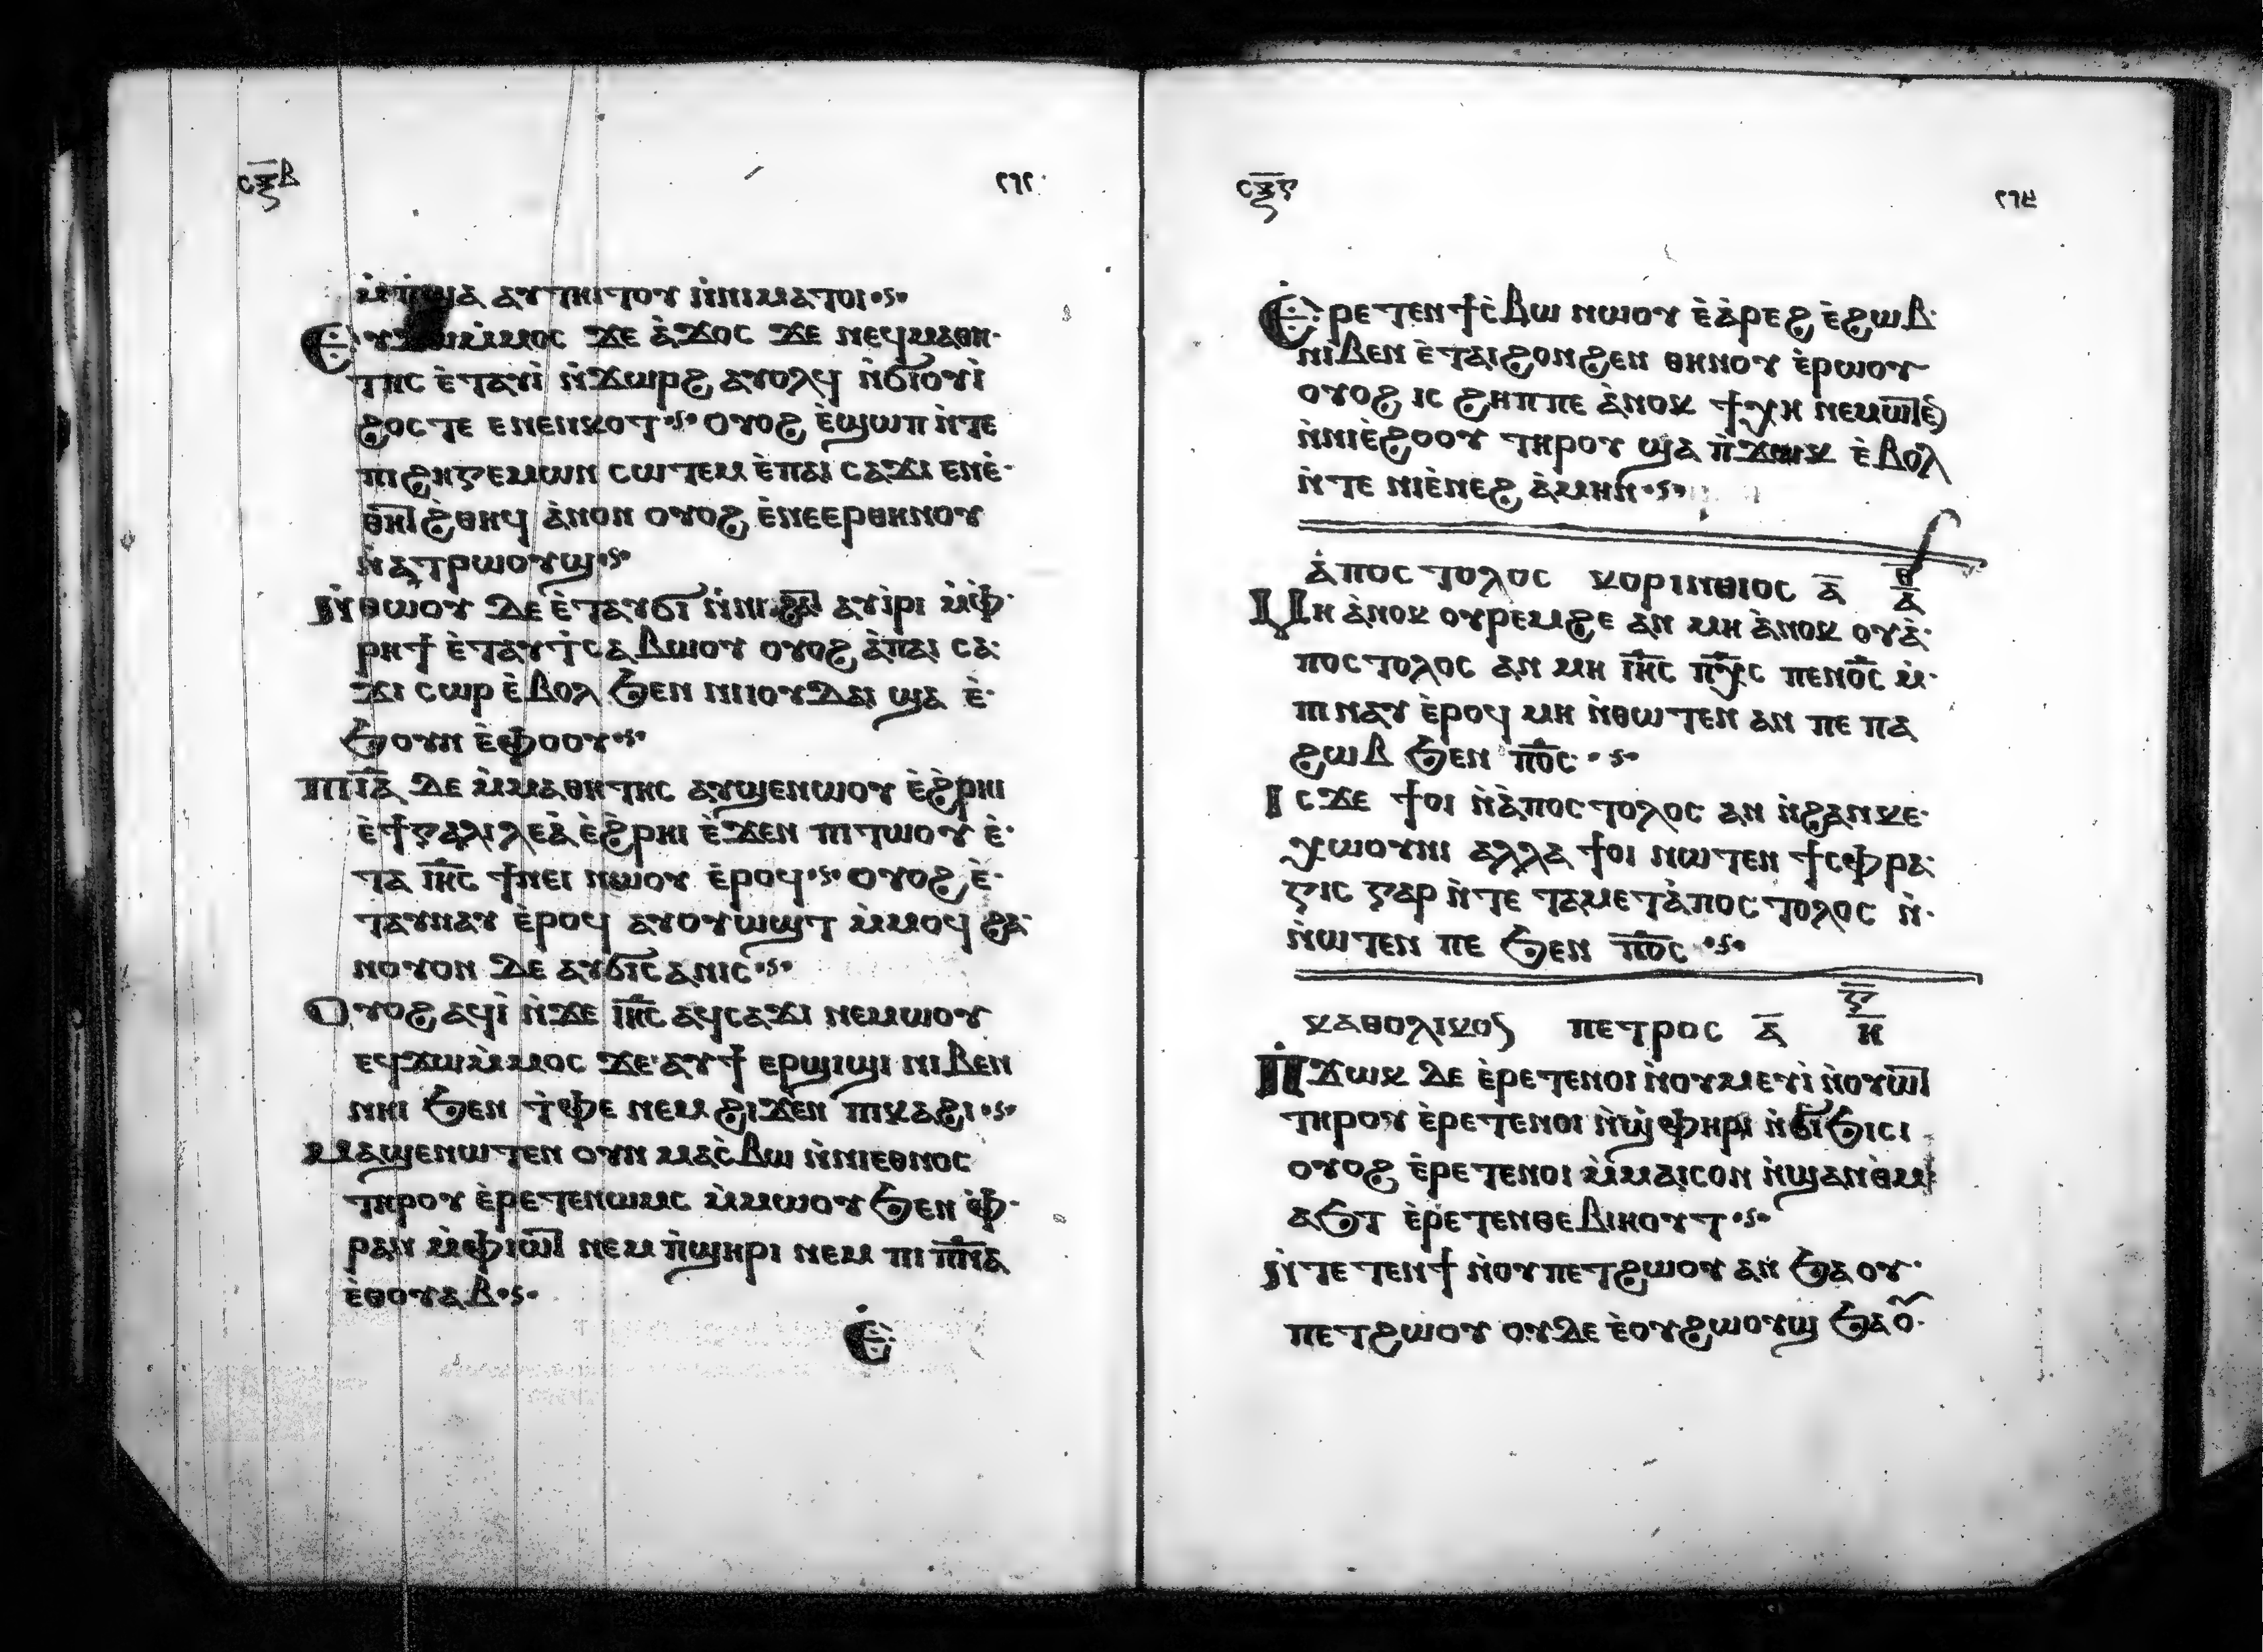 ⲥⲝⲃ
ⲙ̀ⲡϣⲁ ⲁⲩⲧⲏⲓⲧⲟⲩ ⲛ̀ⲛⲓⲙⲁⲧⲟⲓ
Ⲉⲩϫⲱⲙ̀ⲙⲟⲥ ϫⲉ ⲁ̀ϫⲟⲥ ϫⲉ ⲛⲉϥⲙⲁⲑⲏ
ⲧⲏⲥ ⲉ̀ⲧⲁⲩⲓ̀ ⲛ̀ϫⲱⲣϩ ⲁⲩⲟⲗϥ ⲛ̀ϭⲓⲟⲩⲓ̀
ϩⲟⲥⲧⲉ ⲉⲛⲉⲛⲕⲟⲧ ⲟⲩⲟϩ ⲉ̀ϣⲱⲡ ⲛ̀ⲧⲉ
ⲡⲓϩⲏⲅⲉⲙⲱⲛ ⲥⲱⲧⲉⲙ ⲉ̀ⲡⲁⲓ ⲥⲁϫⲓ ⲉⲛⲉ̀
ⲑⲏⲧϩⲑⲏϥ ⲁ̀ⲛⲟⲛ ⲟⲩⲟϩ ⲉ̀ⲛⲉⲉⲣⲑⲏⲛⲟⲩ
ⲛ̀ⲁⲧⲣⲱⲟⲩϣ
Ⲛ̀ⲑⲱⲟⲩ ⲇⲉ ⲉ̀ⲧⲁⲩϭⲓ ⲛ̀ⲛⲓϩⲁⲧ ⲁⲩⲓ̀ⲣⲓ ⲙ̀ⲫ
ⲣⲏϯ ⲉ̀ⲧⲁⲩⲧ̀ⲥⲁⲃⲱⲟⲩ ⲟⲩⲟϩ ⲁ̀ⲡⲁⲓ ⲥⲁ
ϫⲓ ⲥⲱⲣ ⲉ̀ⲃⲟⲗ ϧⲉⲛ ⲛⲓⲓⲟⲩⲇⲁⲓ ϣⲁ ⲉ̀
ϧⲟⲩⲛ ⲉ̀ⲫⲟⲟⲩ
ⲡⲓⲓ̅ⲁ̅ ⲇⲉ ⲙ̀ⲙⲁⲑⲏⲧⲏⲥ ⲁⲩϣⲉⲛⲱⲟⲩ ⲉ̀ϩ̀ⲣⲏⲓ
ⲉ̀ϯⲅⲁⲗⲓⲗⲉⲁ̀ ⲉ̀ϩ̀ⲣⲏⲓ ⲉ̀ϫⲉⲛ ⲡⲓⲧⲱⲟⲩ ⲉ̀
ⲧⲁ ⲓ̅ⲏ̅ⲥ̅ ϯⲙⲉⲓ ⲛⲱⲟⲩ ⲉ̀ⲣⲟϥ ⲟⲩⲟϩ ⲉ̀
ⲧⲁⲩⲛⲁⲩ ⲉ̀ⲣⲟϥ ⲁⲩⲟⲩⲱϣⲧ ⲙ̀ⲙⲟϥ ϩⲁ
ⲛⲟⲩⲟⲛ ⲇⲉ ⲁⲩϭⲓⲥⲁⲛⲓⲥ
Ⲟⲩⲟϩ ⲁϥⲓ̀ ⲛ̀ϫⲉ ⲓ̅ⲏ̅ⲥ̅ ⲁϥⲥⲁϫⲓ ⲛⲉⲙⲱⲟⲩ
ⲉϥϫⲱⲙ̀ⲙⲟⲥ ϫⲉ ⲁⲩϯ ⲉⲣϣⲓϣⲓ ⲛⲓⲃⲉⲛ
ⲛⲏⲓ ϧⲉⲛ ⲧ̀ⲫⲉ ⲛⲉⲙ ϩⲓϫⲉⲛ ⲡⲓⲕⲁϩⲓ
ⲙⲁϣⲉⲛⲱⲧⲉⲛ ⲟⲩⲛ ⲙⲁⲥ̀ⲃⲱ ⲛ̀ⲛⲓⲉⲑⲛⲟⲥ
ⲧⲏⲣⲟⲩ ⲉ̀ⲣⲉⲧⲉⲛⲱⲙⲥ ⲙ̀ⲙⲱⲟⲩ ϧⲉⲛ ⲫ̀
ⲣⲁⲛ ⲙ̀ⲫⲓⲱⲧ ⲛⲉⲙ ⲡ̀ϣⲏⲣⲓ ⲛⲉⲙ ⲡⲓⲡ̅ⲛ̅ⲁ̅
ⲉ̀ⲑⲟⲩⲁⲃ
Ⲉ̀
ⲥⲝⲅ
Ⲉ̀ⲣⲉⲧⲉⲛϯⲥ̀ⲃⲱ ⲛⲱⲟⲩ ⲉ̀ⲁ̀ⲣⲉϩ ⲉ̀ϩⲱⲃ
ⲛⲓⲃⲉⲛ ⲉ̀ⲧⲁⲓϩⲟⲛϩⲉⲛ ⲑⲏⲛⲟⲩ ⲉ̀ⲣⲱⲟⲩ
ⲟⲩⲟϩ ⲓⲥ ϩⲏⲡⲡⲉ ⲁ̀ⲛⲟⲕ ϯⲭⲏ ⲛⲉⲙⲱⲧⲉⲛ
ⲛ̀ⲛⲓⲉ̀ϩⲟⲟⲩ ⲧⲏⲣⲟⲩ ϣⲁ ⲡ̀ϫⲱⲕ ⲉ̀ⲃⲟⲗ
ⲛ̀ⲧⲉ ⲛⲓⲉ̀ⲛⲉϩ ⲁ̀ⲙⲏⲛ
ⲁ̀ⲡⲟⲥⲧⲟⲗⲟⲥ ⲕⲟⲣⲓⲛⲑⲓⲟⲥ ⲁ̅ ⲑ̅ ⲁ̅
Ⲙⲏ ⲁ̀ⲛⲟⲕ ⲟⲩⲣⲉⲙϩⲉ ⲁⲛ ⲙⲏ ⲁ̀ⲛⲟⲕ ⲟⲩⲁ̀
ⲡⲟⲥⲧⲟⲗⲟⲥ ⲁⲛ ⲙⲏ ⲓ̅ⲏ̅ⲥ̅ ⲡ̅ⲭ̅ⲥ̅ ⲡⲉⲛⲟ̅ⲥ̅ ⲙ̀
ⲡⲓⲛⲁⲩ ⲉ̀ⲣⲟϥ ⲙⲏ ⲛ̀ⲑⲱⲧⲉⲛ ⲁⲛ ⲡⲉ ⲡⲁ
ϩⲱⲃ ϧⲉⲛ ⲡ̅ⲟ̅ⲥ̅
Ⲓⲥϫⲉ ϯⲟⲓ ⲛ̀ⲁ̀ⲡⲟⲥⲧⲟⲗⲟⲥ ⲁⲛ ⲛ̀ϩⲁⲛⲕⲉ
ⲭⲱⲟⲩⲛⲓ ⲁⲗⲗⲁ ϯⲟⲓ ⲛⲱⲧⲉⲛ ϯⲥⲫⲣⲁ
ⲅⲓⲥ ⲅⲁⲣ ⲛ̀ⲧⲉ ⲧⲁⲙⲉⲧⲁ̀ⲡⲟⲥⲧⲟⲗⲟⲥ ⲛ̀
ⲛ̀ⲱⲧⲉⲛ ⲡⲉ ϧⲉⲛ ⲡ̅ⲟ̅ⲥ̅
ⲕⲁⲑⲟⲗⲓⲕⲟⲥ ⲡⲉⲧⲣⲟⲥ ⲁ̅ ⲅ̅ ⲏ̅
Ⲡ̀ϫⲱⲕ ⲇⲉ ⲉ̀ⲣⲉⲧⲉⲛⲟⲓ ⲛ̀ⲟⲩⲙⲉⲩⲓ̀ ⲛ̀ⲟⲩⲱⲧ
ⲧⲏⲣⲟⲩ ⲉ̀ⲣⲉⲧⲉⲛⲟⲓ ⲛ̀ϣ̀ⲫⲏⲣⲓ ⲛ̀ϭⲓϧⲓⲥⲓ
ⲟⲩⲟϩ ⲉ̀ⲣⲉⲧⲉⲛⲟⲓ ⲙ̀ⲙⲁⲓⲥⲟⲛ ⲛ̀ϣⲁⲛⲑⲙ
ⲁϧⲧ ⲉ̀ⲣⲉⲧⲉⲛⲑⲉⲃⲓⲏⲟⲩⲧ
Ⲛ̀ⲧⲉⲧⲉⲛϯ ⲛ̀ⲟⲩⲡⲉⲧϩⲱⲟⲩ ⲁⲛ ϧⲁ ⲟⲩ
ⲡⲉⲧϩⲱⲟⲩ ⲟⲩⲇⲉ ⲉ̀ⲟⲩϩⲱⲟⲩϣ ϧⲁⲟ